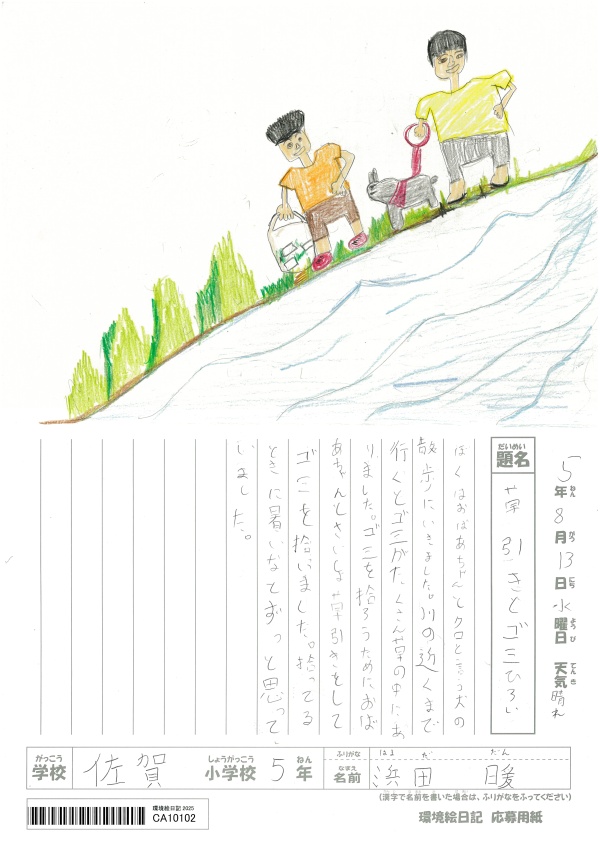 5年8月13日水曜日 天気晴れ
題名 草引きとゴミひろい
ぼくはおばあちゃんとクロと言う犬の
散歩にいきました。川の近くまで
行くとゴミがたくさん草の中にあ
りました。ゴミを拾ろうためにおば
あちゃんとさいしょ草引きをして
ゴミを拾いました。拾ってる
ときに暑いなとずっと思って
いました。
がっこう 学校 佐賀 しょうがっこう 小学校 5 ねん 年 ふりがな はまだ だん
なまえ 名前 浜田 暖
(漢字で名前を書いた場合は、ふりがなをふってください)
環境絵日記 2025
CA10102
環境絵日記 応募用紙